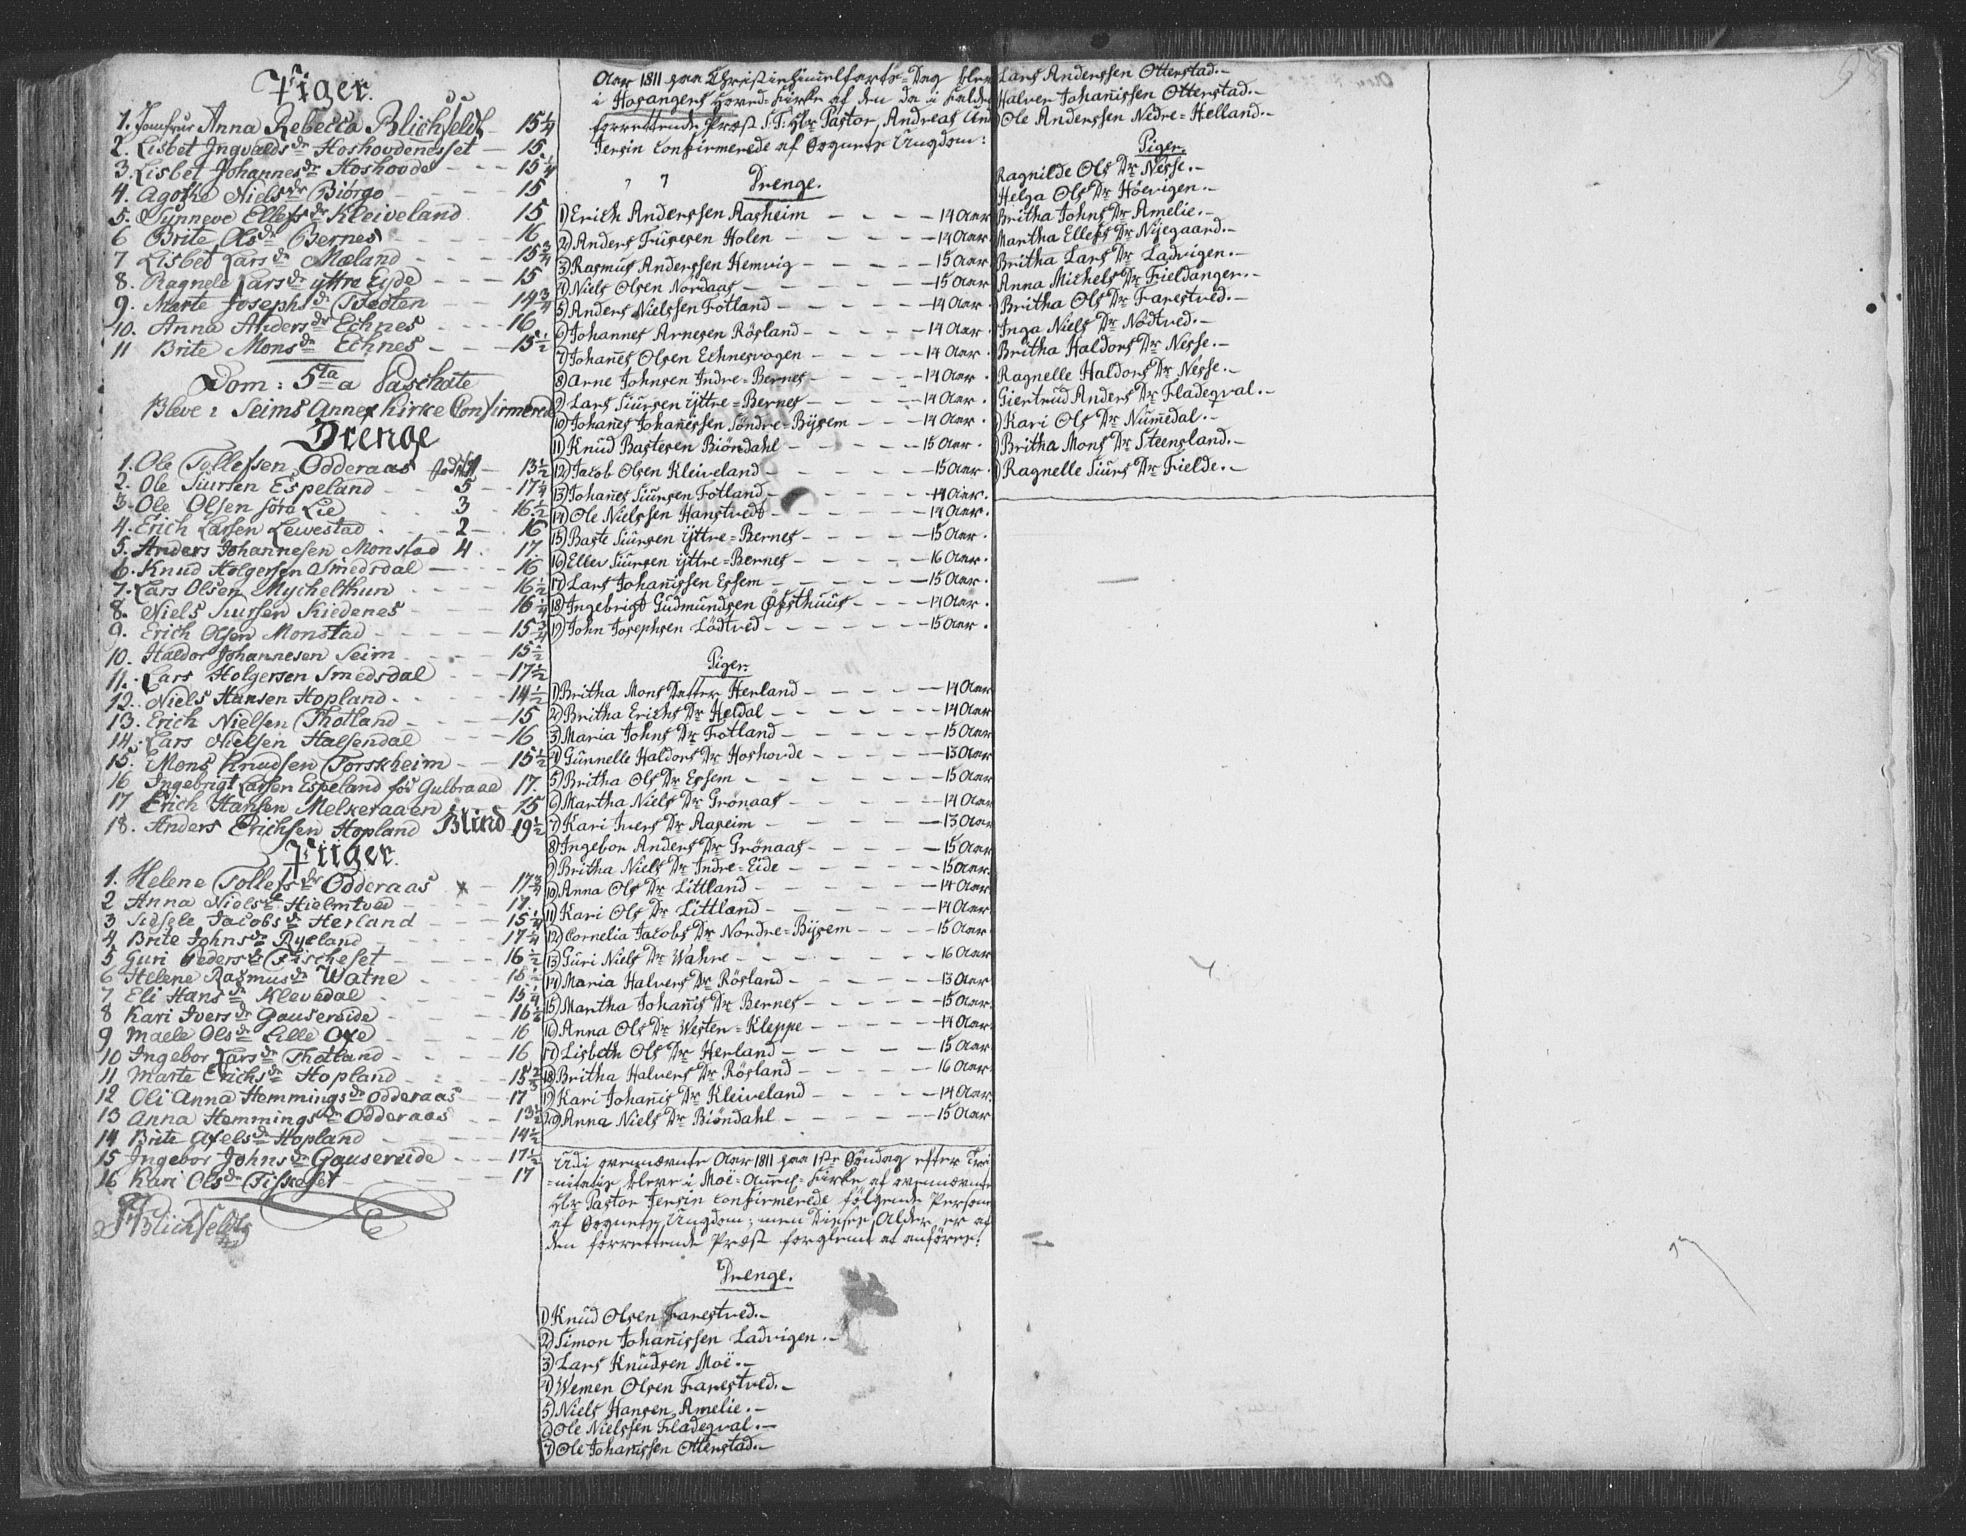 Piger.
1. Jomfrue Anna Rebecca Blichfeldt - 15 1/4
2. Lisbet Ingvalds dr Hoshovdenesset - 15
3. Lisbet Johannes dr Hoshovde - - - 15 1/4
4. Agothe Niels dr Biörgo - - - 15
5. Synneve Ellefs dr Kleiveland 15
6 Brite Ols dr Bernes - - - 16
7 Lisbet Lars dr Mæland - - - 15 3/4
8. Ragnele Lars dr yttre Eide - - - 15
9. Marte Josephs dr Tvedten - - - 14 3/4
10. Anna Anders dr Echnes - - - 16
11 Brite Mons dr Echnes - - - 15 1/2
Dom: 5ta a Paschate
Bleve i Seims Annex Kirke Confirmerede
Drenge
1. Ole Tollefsen Odderaas - 13 1/2
2. Ole Siursen Espeland - 5 - 17 1/4
3. Ole Olsen Lie 3 - 16 1/2
4. Erich Larsen Lewestad - 2 - 16
5. Anders Johannesen Monstad 4. 17.
6. Knud Holgersen Smedsdal - - - 16
7. Lars Olsen Mychelthun - - - 16 1/2
8. Niels Siursen Kiedenes - - - 16 1/4
9. Erich Olsen Monstad - - - 15 3/4
10. Haldor Johannesen Seim - - - 15 1/2
11. Lars Holgersen Smedsdal - - - 17 1/2
12. Niels Hansen Hopland - - - 14 1/2
13. Erich Nielsen Thotland - - - 15
14. Lars Nielsen Halsendal - - - 16
15. Mons Knudsen Torskheim - - 15 1/2
16 Ingebrigt Larsen Espeland för Gulbraae 17.
17 Erich Hansen Melseraaen 15
18. Anders Erichsen Hopland Blind - 19 1/2
Piiger.
1. Helene Tollefs dr Odderaas x - 17 3/4
2 Anna Niels dr Hielmtved - - - 17.
3 Sidsele Jacobs dr Herland - - - 15 1/4
4 Brite Johns dr Ryeland - - - 17 1/4
5 Guri Peders dr Fischeset - - - 16 1/2
6 Helene Rasmus dr Watne - - - 15 1/2
7 Eli Hans dr Klevedal - - - 15 1/4
8 Kari Ivers dr Gausereide - - - 16 1/2
9 Maele Ols dr Lille Oxe - - - 16
10 Ingebor Lars dr Thotland - - - 16
11 Marte Erichs dr Hopland - - - 15 2/3
12 Oli Anna Hemmings dr Odderaas - - 17
13 Anna Hemmings dr Odderaas - - 13 1/2
14 Brite Axels dr Hopland - - - 14 1/2
15 Ingebor Johns dr Gausereide - - - 17 1/2
16 Kari Ols dr Fisseset - - - 17
Blichfeldt
Aar 1811 paa Christi Himmelfarts-Dag blev
i Hosangers Hoved-Kirke af den da i Kaldet
forrettende Præst S.T: Hr Pastor Andreas Und
Jersin Confirmerede af Sognets Ungdom:
Drenge.
1) Erich Anderssen Aasheim - - - 14 Aar
2) Anders Siursen Holen - - - 14 Aar
3) Rasmus Anderssen Hemvig - - - 15 Aar
4) Niels Olsen Nordaas - - - 15 Aar
5) Anders Nielssen Fotland - - - 14 Aar.
6) Johannes Arnesen Rösland - - - 14 Aar.
7) Johanes Olsen Echnesvogen - - - 14 Aar.
8) Arne Johnsen Indre-Bernes - - - 14 Aar.
9) Lars Siursen Yttre-Bernes - - - 14 Aar.
10) Johanes Johanissen Söndre-Bysem - - - 14 Aar.
11) Knud Bastesen Biörndahl - - - 15 Aar.
12) Jacob Olsen Kleiveland - - - 15 Aar.
13) Johanes Siursen Fotland - - - 14 Aar.
14) Ole Nielssen Hanstvedt - - - 14 Aar.
15) Baste Siursen Yttre-Bernes - - - 15 Aar.
16) Ellev Siursen Yttre-Bernes - - - 16 Aar.
17) Lars Johanissen Essem - - - 15 Aar.
18) Ingebrigt Gudmundsen Øssthuus - - - 14 Aar.
19) John Josephsen Lödtved - - - 15 Aar.
Piger.
1) Britha Mons Datter Herland - - - 14 Aar
2) Britha Erichs Dr Heldal - - - 14 Aar
3) Maria Johns Dr Fotland - - - 15 Aar
4) Gunnelle Haldors Dr Hoshovde - - - 13 Aar
5) Britha Ols Dr Essem - - - 15 Aar
6) Martha Niels Dr Grönaas - - - 14 Aar
7) Kari Ivers Dr Aaseim - - - 13 Aar.
8) Ingebor Anders Dr Grönaas - - - 15 Aar.
9) Britha Niels Dr Indre-Eide - - - 15 Aar.
10) Anna Ols Dr Littland - - - 14 Aar.
11) Kari Ols Dr Littland - - - 14 Aar.
12) Cornelia Jacobs Dr Nordre-Bysem - - - 15 Aar.
13) Guri Niels Dr Wahre - - - 16 Aar.
14) Maria Halvers Dr Rösland - - - 13 Aar.
15) Martha Johanis Dr Bernes - - - 15 Aar.
16) Anna Ols Dr Wester-Kleppe - - - 14 Aar.
17) Lisbeth Ols Dr Herland - - - 15 Aar.
18) Britha Halvers Dr Rösland - - - 16 Aar.
19) Kari Johanis Dr Kleiveland - - - 14 Aar.
20) Anna Niels Dr Biöndahl - - - 15 Aar
Udi ovennævnte Aar 1811 paa 1ste Söndag efter Tri
-nitatis bleve i Moe-Annex-Kirke af ovennævnte
Hr Pastor Jersin Confirmerede følgende Persone
af Sognets Ungdom; men Disses Alder er af
den forrettende Præst forglemt at anføres:
Drenge.
1) Knud Olsen Farestved.-
2) Simon Johanissen Ladvigen.-
3) Lars Knudsen Moe.-
4) Wemen Olsen Farestved.-
5) Niels Hansen Amelie.-
6) Ole Nielssen Fladeqval.-
7) Ole Johanissen Otterstad.-
Lars Anderssen Otterstad.-
Halver Johanissen Otterstad.-
Ole Anderssen Nedre-Helland.-
Piger.
Ragnilde Ols Dr Nesse.-
Helga Ols Dr Höevigen.-
Britha Johns Dr Amelie.-
Martha Ellefs Dr Nyegaard.-
Britha Lars Dr Ladvigen.-
Anna Michels Dr Fieldanger.-
Britha Ols Dr Farestved.-
Inga Niels Dr Nödtved.-
Britha Haldors Dr Nesse.-
Ragnelle Haldors Dr Nesse.-
Giertrud Anders Dr Fladeqval.-
Kari Ols Dr Numedal.-
Britha Mons Dr Steensland.-
Ragnelle Siurs Dr Fielde.-